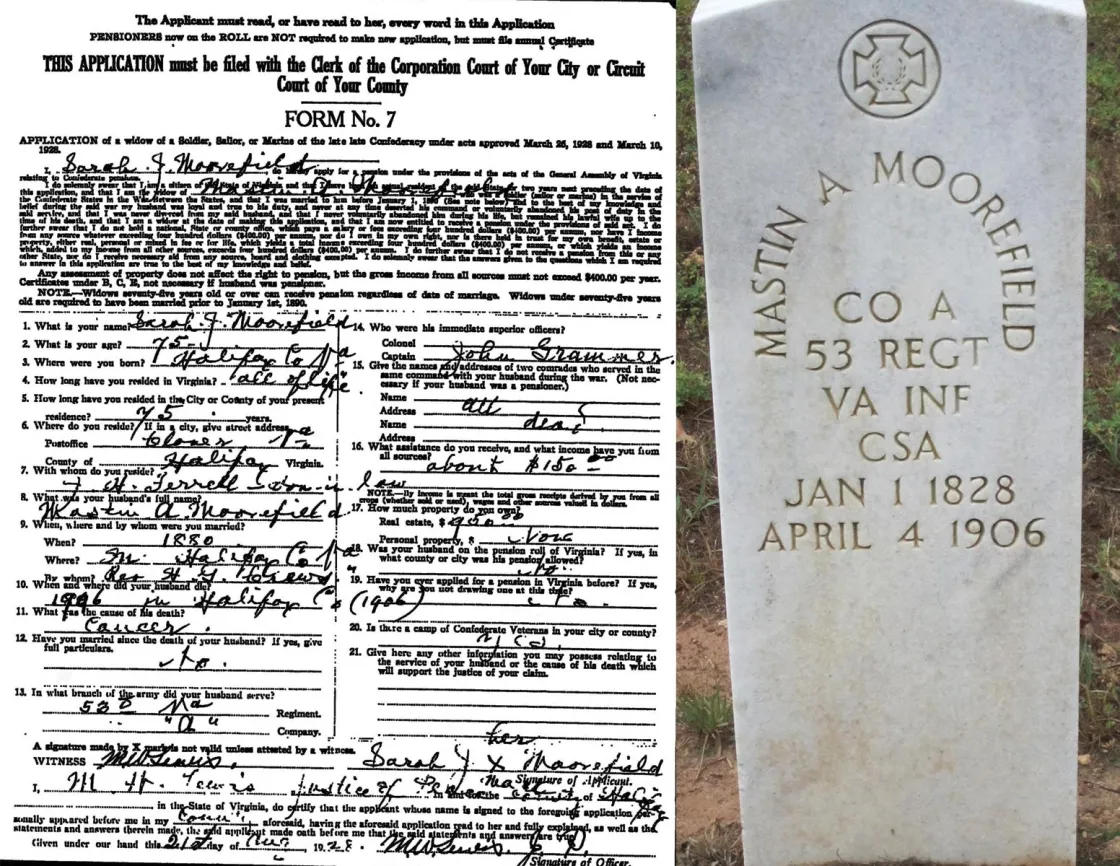 The Applicant must read, or have read to her, every word in this Application
PENSIONERS now on the ROLL are NOT required to make new application, but must file annual Certificate
THIS APPLICATION must be filed with the Clerk of the Corporation Court of Your City or Circuit
Court of Your County
FORM No. 7
APPLICATION of a widow of a Soldier, Sailor, or Marine of the late late Confederacy under acts approved March 26, 1928 and March 10,
1928.
I, Sarah J. Moorefield do hereby apply for a pension under the provisions of the acts of the General Assembly of Virginia
relating to Confederate pensions.
Any assessment of property does not affect the right to pension, but the gross income from all sources must not exceed $400.00 per year.
Certificates under B, C, E, not necessary if husband was pensioner.
NOTE.—Widows seventy-five years old or over can receive pension regardless of date of marriage. Widows under seventy-five years
old are required to have been married prior to January 1st, 1890.
1. What is your name? Sarah J. Moorefield
2. What is your age? 75
3. Where were you born? Halifax Co Va
4. How long have you resided in Virginia? "all of life"
5. How long have you resided in the City or County of your present
residence? 75 years.
6. Where do you reside? If in a city, give street address
Postoffice Clover Va
County of Halifax Virginia.
7. With whom do you reside?
J. H. Terrell Son in law
8. What was your husband's full name?
Mastin A. Moorefield
9. When, where and by whom were you married?
When? 1880
Where? In Halifax Co Va
By whom? Rev H. G. Crews
10. When and where did your husband die?
1906 in Halifax Co (1906)
11. What was the cause of his death?
Cancer
12. Have you married since the death of your husband? If yes, give
full particulars.
No.
13. In what branch of the army did your husband serve?
53d Va Regiment.
"A" Company.
14. Who were his immediate superior officers?
Colonel
Captain John Grammer
15. Give the names and addresses of two comrades who served in the
same command with your husband during the war. (Not nec-
essary if your husband was a pensioner.)
Name
Address all
Name dead
Address
16. What assistance do you receive, and what income have you from
all sources?
about $150
NOTE.—By income is meant the total gross receipts derived by you from all
crops (whether sold or used), wages and other sources valued in dollars.
17. How much property do you own?
Real estate, $
Personal property, $ None
18. Was your husband on the pension roll of Virginia? If yes, in
what county or city was his pension allowed?
No
19. Have you ever applied for a pension in Virginia before? If yes,
why are you not drawing one at this time?
No.
20. Is there a camp of Confederate Veterans in your city or county?
21. Give here any other information you may possess relating to
the service of your husband or the cause of his death which
will support the justice of your claim.
A signature made by X mark is not valid unless attested by a witness.
her
WITNESS M W Lewis Sarah J. X Moorefield
Mark Signature of Applicant.
I, M. W. Lewis Justice of Peace in and for the County of Halifax
in the State of Virginia, do certify that the applicant whose name is signed to the foregoing application per-
sonally appeared before me in my County aforesaid, having the aforesaid application read to her and fully explained, as well as the
statements and answers therein made, the said applicant made oath before me that the said statements and answers are true.
Given under our hand this 21st day of Aug 1928. M W Lewis J. P.
Signature of Officer.
MASTIN A MOOREFIELD
CO A
53 REGT
VA INF
CSA
JAN 1 1828
APRIL 4 1906